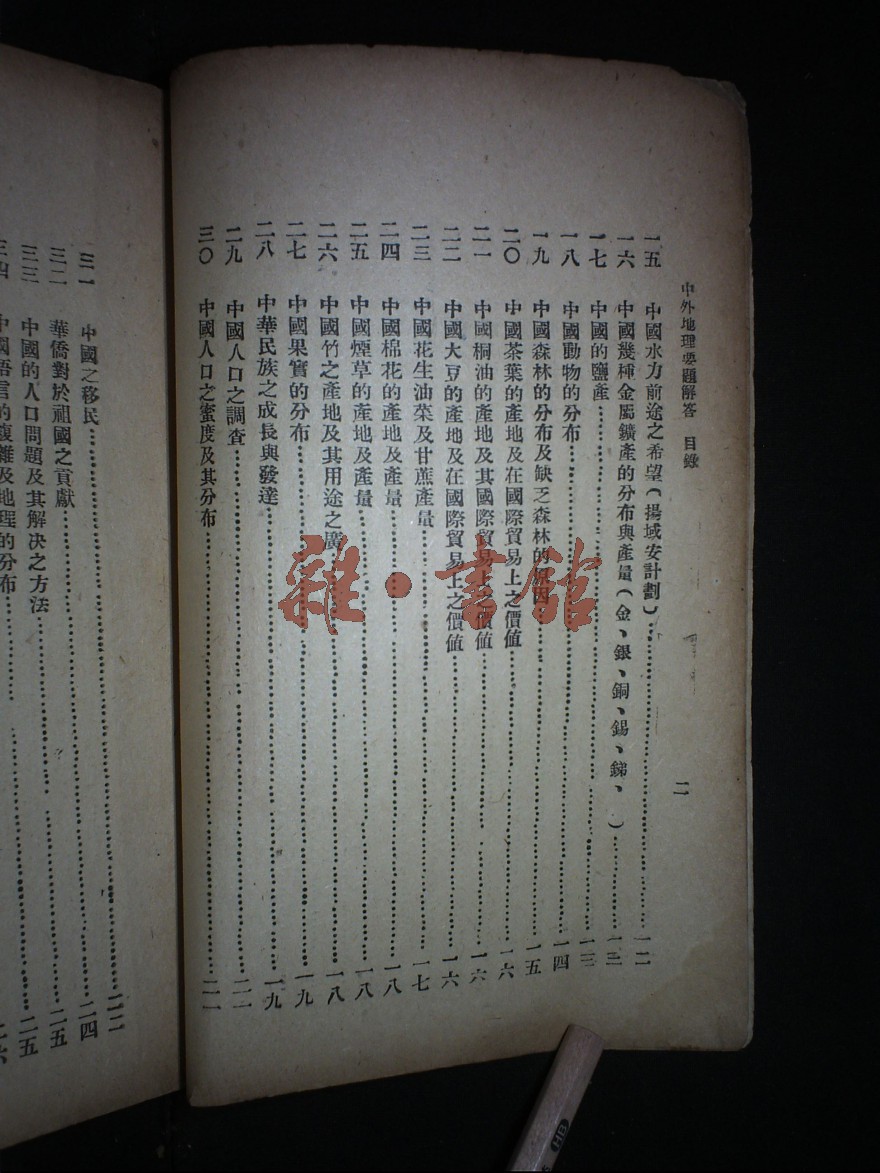 中外地理要題解答　目錄　二
一五　中國水力前途之希望(揚域安計劃)……一二
一六　中國幾種金屬鑛產的分布與產量(金、銀、銅、錫、銻、　)……一三
一七　中國的鹽產……一三
一八　中國動物的分布……一四
一九　中國森林的分布及缺乏森林的原因……一五
二〇　中國茶葉的產地及在國際貿易上之價值……一六
二一　中國桐油的產地及其國際貿易上之價值……一六
二二　中國大豆的產地及在國際貿易上之價值……一六
二三　中國花生油菜及甘蔗產量……一七
二四　中國棉花的產地及產量……一八
二五　中國煙草的產地及產量……一八
二六　中國竹之產地及其用途之廣……一八
二七　中國果實的分布……一九
二八　中華民族之成長與發達……一九
二九　中國人口之調查……二一
三〇　中國人口之蜜度及其分布……二一
三一　中國之移民……二二
三二　華僑對於祖國之貢獻……二四
三三　中國的人口問題及其解决之方法……二五
三四　中國語言的複雜及地理的分布……二五
二六
雜·書館
HB